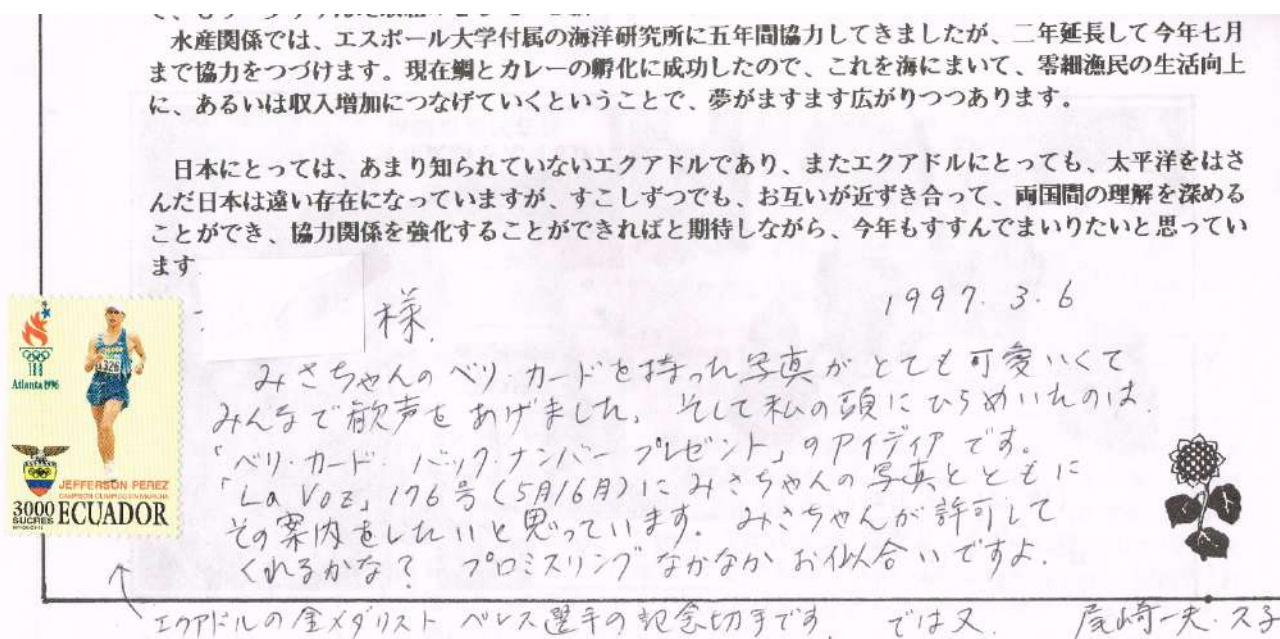 水産関係では、エスポール大学付属の海洋研究所に五年間協力してきましたが、二年延長して今年七月
まで協力をつづけます。現在鯛とカレーの孵化に成功したので、これを海にまいて、零細漁民の生活向上
に、あるいは収入増加につなげていくということで、夢がますます広がりつつあります。
日本にとっては、あまり知られていないエクアドルであり、またエクアドルにとっても、太平洋をはさ
んだ日本は遠い存在になっていますが、すこしずつでも、お互いが近ずき合って、両国間の理解を深める
ことができ、協力関係を強化することができればと期待しながら、今年もすすんでまいりたいと思ってい
ます
様
1997. 3. 6
みさちゃんのベリ・カードを持った写真がとても可愛いくて
みんなで歓声をあげました。そして私の頭にひらめいたのは
「ベリ・カード バックナンバー プレゼント」のアイディアです。
「La Voz」176号(5月/6月)にみさちゃんの写真とともに
その案内をしたいと思っています。みさちゃんが許可して
くれるかな? プロミスリングなかなかお似合いですよ.
Atlanta 1996
JEFFERSON PEREZ
CAMPEON OLIMPICO EN MARCHA
3000
SUCRES
ECUADOR
エクアドルの金メダリスト ペレス選手の記念切手です
では又
尾崎一夫